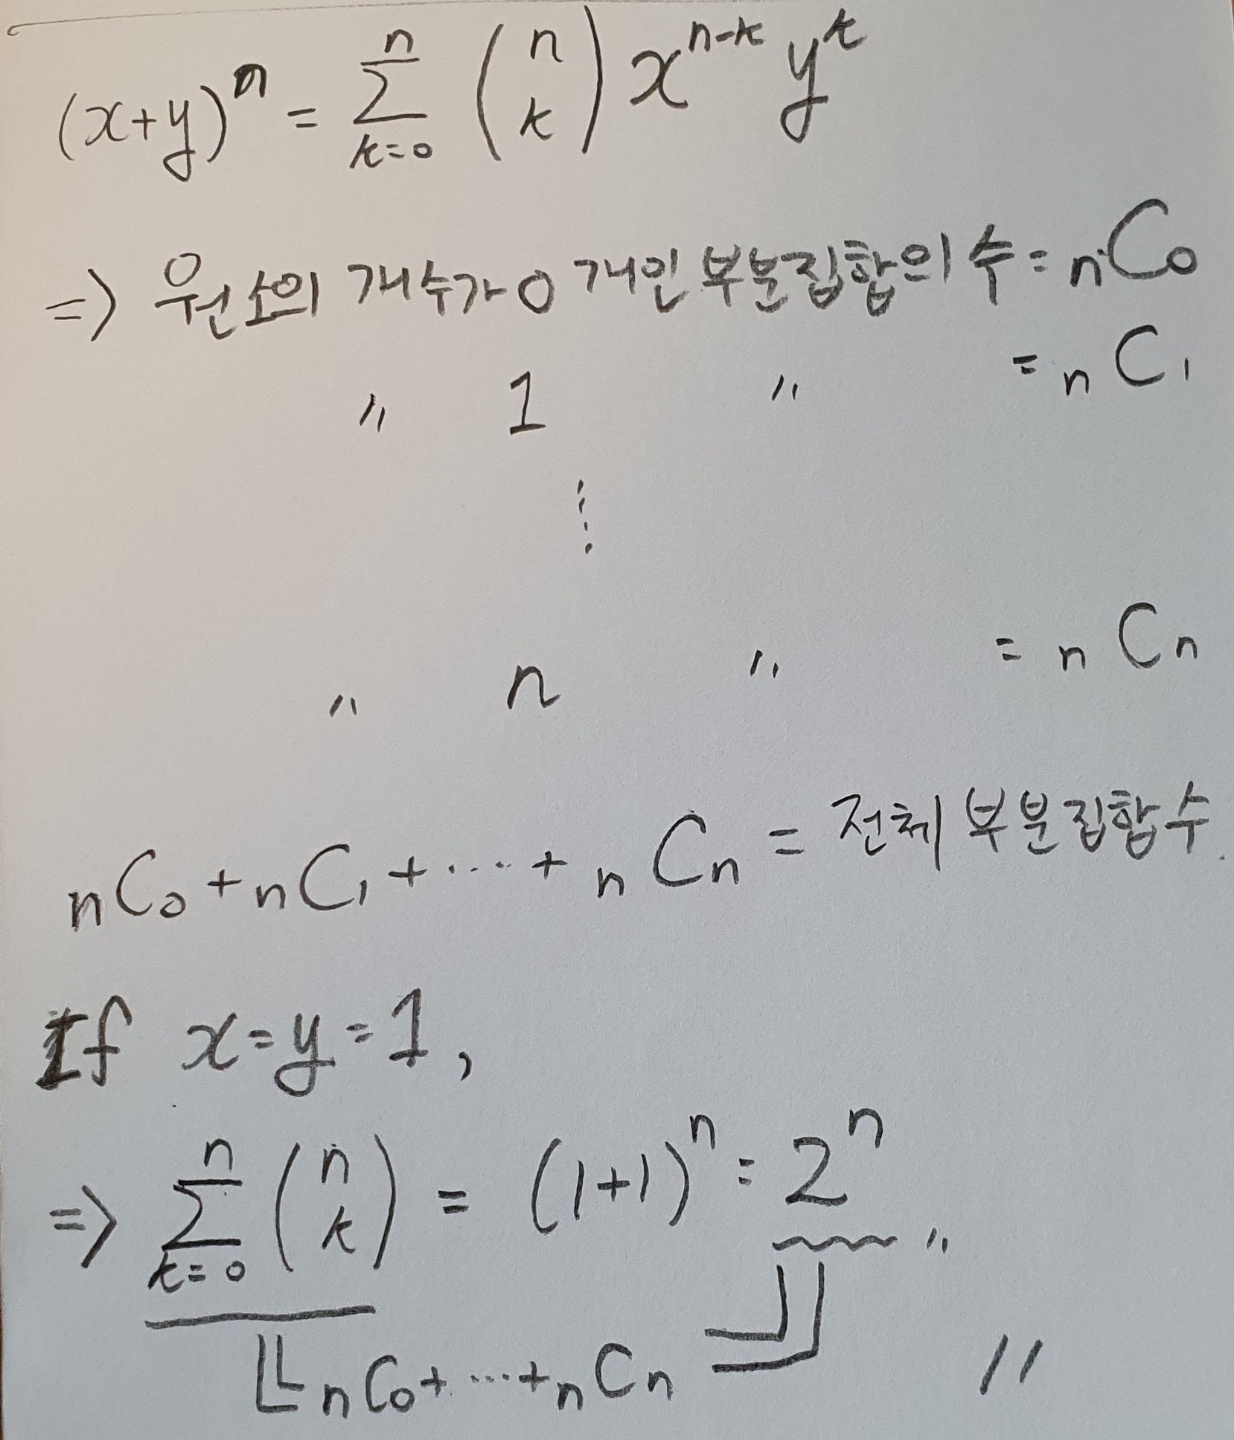 (x+y)ⁿ = Σ_{k=0}^{n} (n k) x^{n-k} y^k
=> 원소의 개수가 0개인 부분집합의 수 = nC₀
〃 1 〃 = nC₁
⋮
〃 n 〃 = nCn
nC₀ + nC₁ + ··· + nCn = 전체 부분집합 수.
If x=y=1,
=> Σ_{k=0}^{n} (n k) = (1+1)ⁿ = 2ⁿ 〃
nC₀ + ··· + nCn //